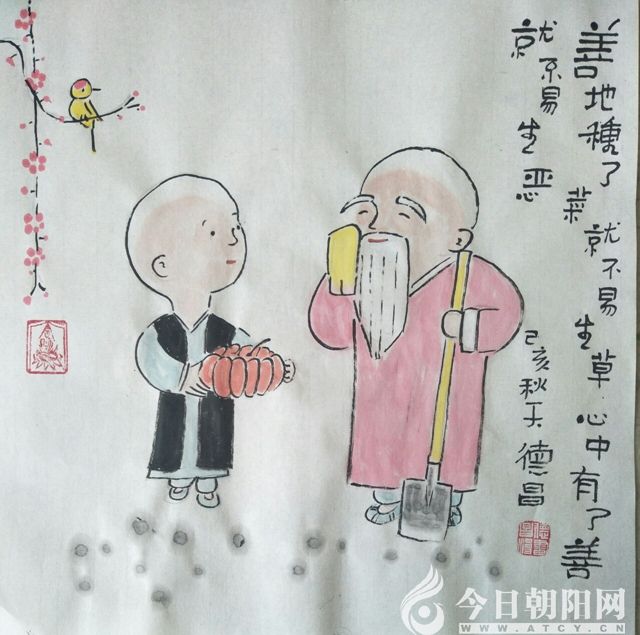 善地種了菜就不易生草心中有了善
就不易生恶
己亥秋天
德昌
今日朝阳网
WWW.ATCY.CN